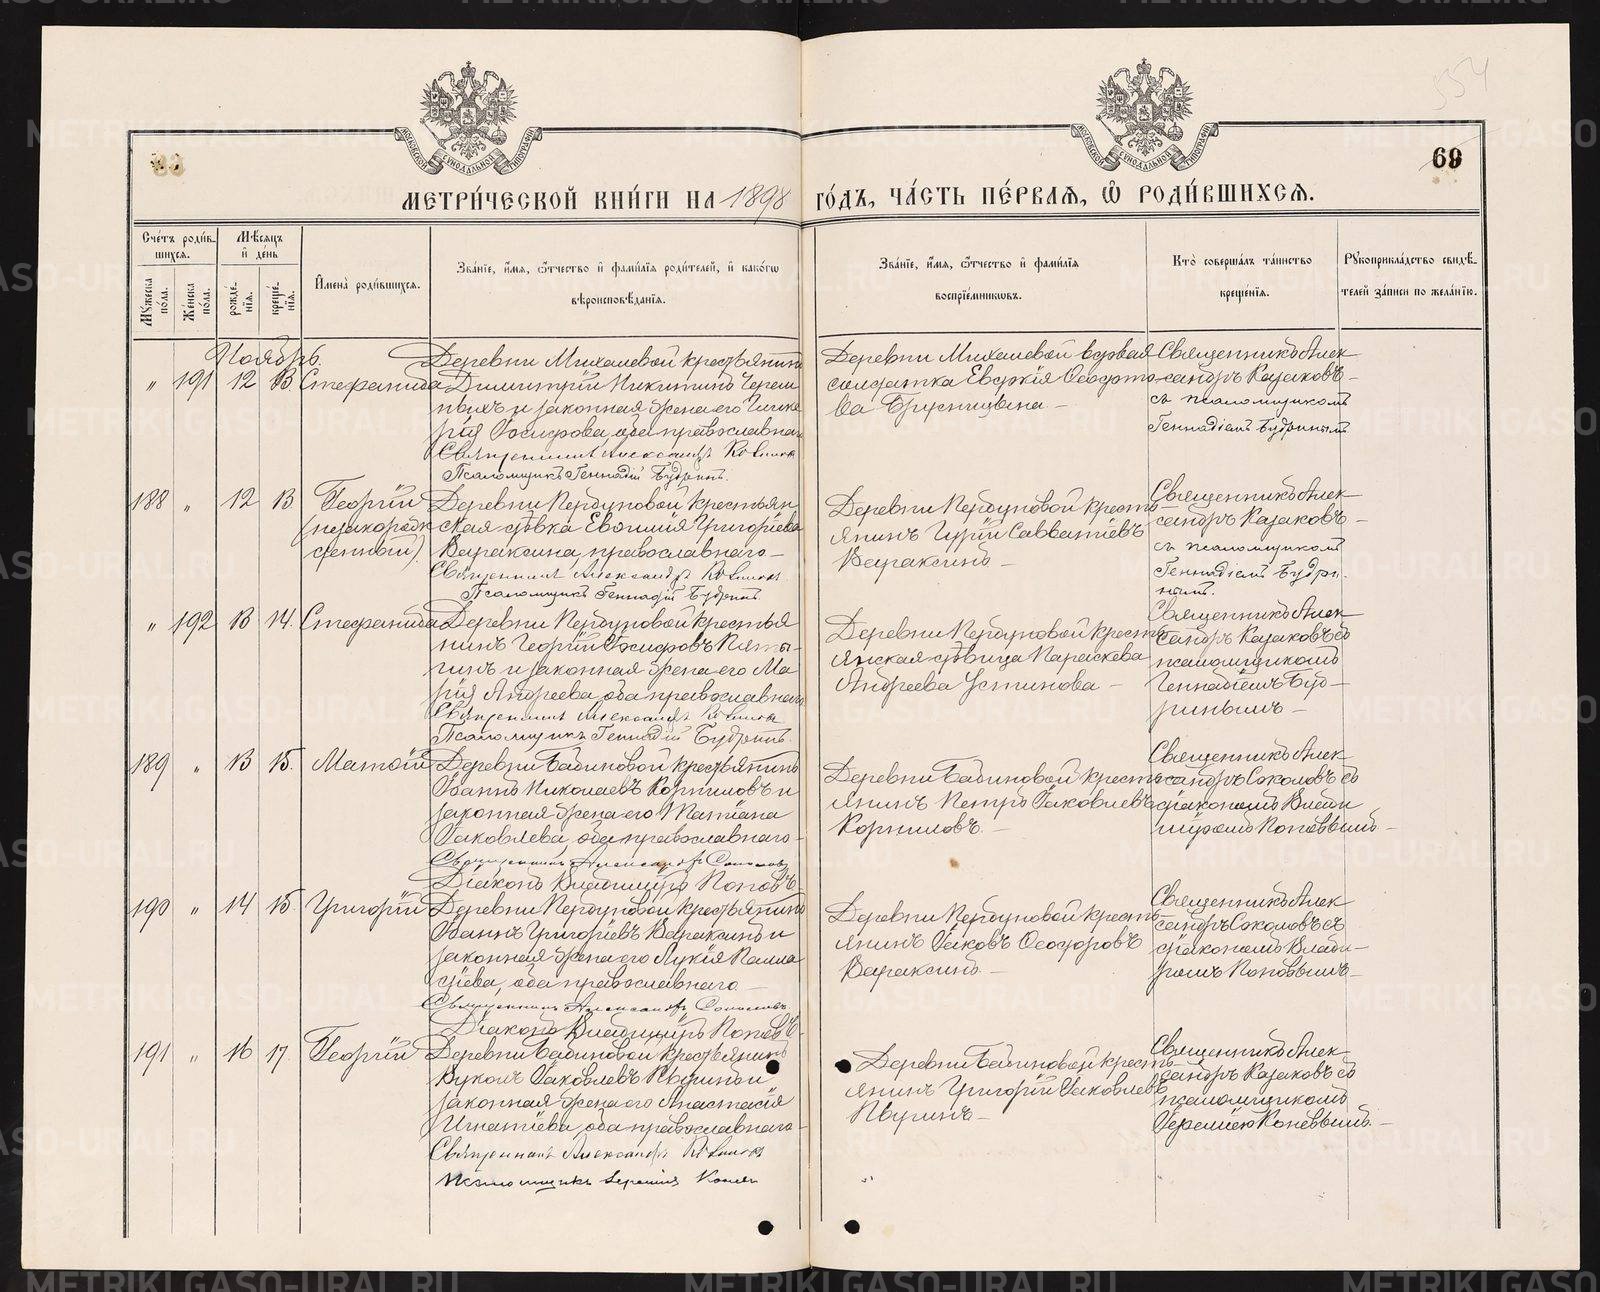 69
МЕТРИ́ЧЕСКОЙ КНИ́ГИ НА 1898 ГО́ДЪ, ЧА́СТЬ ПЕ́РВАЯ, Ѽ РОДИ́ВШИХСЯ.
Сче́тъ роди́вшихся.
Му́жеска по́ла.
Же́нска по́ла.
Мѣ́сяцъ и҆ де́нь
рожде́нїя.
креще́нїя.
И҆мена̀ роди́вшихся.
Зва́нїе, и҆́мя, ѻ҆́тчество и҆ фами́лїя роди́телей, и҆ како́гѡ
вѣроисповѣ́данїя.
Зва́нїе, и҆́мя, ѻ҆́тчество и҆ фами́лїя
воспрїе́мникѡвъ.
Кто̀ соверша́лъ та́инство
креще́нїя.
Рꙋкоприкла́дство свидѣ́телей за́писи по жела́нїю.
Ноябрь.
" 191 12 13. Стефанида
Деревни Михалевой крестьянинъ
Димитрій Никитинъ Черем-
ныхъ и законная жена его Глике-
рія Іосифова, оба православнаго
Священникъ Александръ Казаковъ
Псаломщикъ Геннадій Будринъ.
Деревни Михалевой вдовая
солдатка Евдокія Ѳеодоро-
ва Брусницына —
Священникъ Алек-
сандръ Казаковъ —
съ псаломщикомъ
Геннадіемъ Будринымъ.
188 " 12 13 Георгій
(незаконорож-
денный).
Деревни Пербуновой крестьян-
ская дѣвка Евѳимія Григоріева
Вараксина, православнаго —
Священникъ Александръ Казаковъ
Псаломщикъ Геннадій Будринъ.
Деревни Пербуновой кресть-
янинъ Гурій Савватіевъ
Вараксинъ —
Священникъ Алек-
сандръ Казаковъ —
съ псаломщикомъ
Геннадіемъ Будри-
нымъ.
" 192 13 14. Стефанида
Деревни Пербуновой крестья-
нинъ Георгій Іосифовъ Пяты-
гинъ и законная жена его Ма-
рія Андреева, оба православнаго
Священникъ Александръ Казаковъ
Псаломщикъ Геннадій Будринъ.
Деревни Пербуновой кресть-
янская дѣвица Параскева
Андреева Устинова —
Священникъ Алек-
сандръ Казаковъ съ
псаломщикомъ
Геннадіемъ Буд-
ринымъ —
189 " 13 15. Матѳій
Деревни Бабиновой крестьянинъ
Іоаннъ Николаевъ Корниловъ и
законная жена его Татіана
Іаковлева, оба православнаго —
Священникъ Александръ Соколовъ
Діаконъ Владиміръ Поповъ
Деревни Бабиновой кресть-
янинъ Петръ Іаковлевъ
Корниловъ. —
Священникъ Алек-
сандръ Соколовъ съ
діакономъ Влади-
міромъ Поповымъ —
190 " 14 15. Григорій
Деревни Пербуновой крестьянинъ
Іоаннъ Григоріевъ Вараксинъ и
законная жена его Лукія Палла-
діева, оба православнаго —
Священникъ Александръ Соколовъ
Діаконъ Владиміръ Поповъ
Деревни Пербуновой кресть-
янинъ Іаковъ Ѳеодоровъ
Вараксинъ. —
Священникъ Алек-
сандръ Соколовъ съ
діакономъ Влади-
ромъ Поповымъ —
191 " 16 17. Георгій
Деревни Бабиновой крестьянинъ
Вуколъ Іаковлевъ Пьуринъ и
законная жена его Анастасія
Игнатіева, оба православнаго —
Священникъ Александръ Казаковъ
Псаломщикъ Іеремія Коневъ
Деревни Бабиновой кресть-
янинъ Григорій Іаковлевъ
Пьуринъ —
Священникъ Алек-
сандръ Казаковъ съ
псаломщикомъ
Іереміею Коневымъ. —